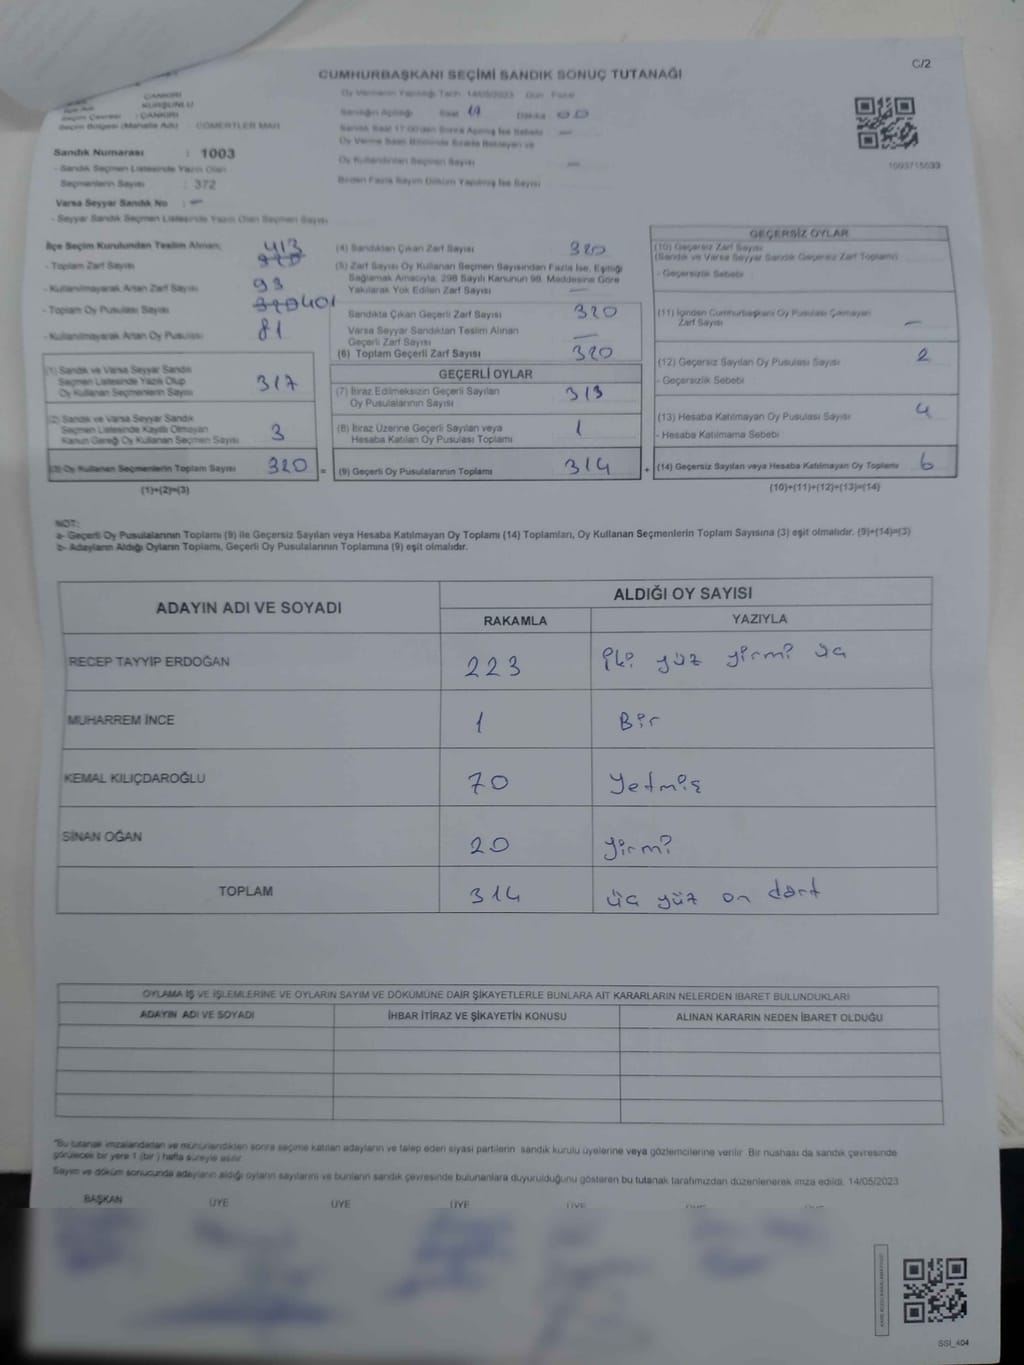 C/2
CUMHURBAŞKANI SEÇİMİ SANDIK SONUÇ TUTANAĞI
ÇANKIRI
KURŞUNLU
Seçim Çevresi : ÇANKIRI
Seçim Bölgesi (Mahalle Adı) : CÖMERTLER MAH
Sandık Numarası : 1003
- Sandık Seçmen Listesinde Yazılı Olan
Seçmenlerin Sayısı : 372
Varsa Seyyar Sandık No : -
- Seyyar Sandık Seçmen Listesinde Yazılı Olan Seçmen Sayısı
Oy Vermenin Yapıldığı Tarih 14/05/2023 Gün Pazar
Sandığın Açıldığı Saat 17 Dakika 00
Sandık Saat 17:00'den Sonra Açılmış İse Sebebi -
Oy Verme Saati Bitiminde Sırada Bekleyen ve
Oy Kullandırılan Seçmen Sayısı -
Birden Fazla Sayım Döküm Yapılmış İse Sayısı
1003715033
İlçe Seçim Kurulundan Teslim Alınan;
413
- Toplam Zarf Sayısı
- Kullanılmayarak Artan Zarf Sayısı 93
- Toplam Oy Pusulası Sayısı 320 401
- Kullanılmayarak Artan Oy Pusulası 81
(1) Sandık ve Varsa Seyyar Sandık
Seçmen Listesinde Yazılı Olup
Oy Kullanan Seçmenlerin Sayısı 317
(2) Sandık ve Varsa Seyyar Sandık
Seçmen Listesinde Kayıtlı Olmayan
Kanun Gereği Oy Kullanan Seçmen Sayısı 3
(3) Oy Kullanan Seçmenlerin Toplam Sayısı 320 =
(1)+(2)=(3)
(4) Sandıktan Çıkan Zarf Sayısı 320
(5) Zarf Sayısı Oy Kullanan Seçmen Sayısından Fazla İse, Eşitliği
Sağlamak Amacıyla, 298 Sayılı Kanunun 98. Maddesine Göre
Yakılarak Yok Edilen Zarf Sayısı -
Sandıkta Çıkan Geçerli Zarf Sayısı 320
Varsa Seyyar Sandıktan Teslim Alınan
Geçerli Zarf Sayısı -
(6) Toplam Geçerli Zarf Sayısı 320
GEÇERLİ OYLAR
(7) İtiraz Edilmeksizin Geçerli Sayılan
Oy Pusulalarının Sayısı 313
(8) İtiraz Üzerine Geçerli Sayılan veya
Hesaba Katılan Oy Pusulası Toplamı 1
(9) Geçerli Oy Pusulalarının Toplamı 314 +
GEÇERSİZ OYLAR
(10) Geçersiz Zarf Sayısı
(Sandık ve Varsa Seyyar Sandık Geçersiz Zarf Toplamı)
- Geçersizlik Sebebi
(11) İçinden Cumhurbaşkanı Oy Pusulası Çıkmayan
Zarf Sayısı -
(12) Geçersiz Sayılan Oy Pusulası Sayısı 2
- Geçersizlik Sebebi
(13) Hesaba Katılmayan Oy Pusulası Sayısı 4
- Hesaba Katılmama Sebebi
(14) Geçersiz Sayılan veya Hesaba Katılmayan Oy Toplamı 6
(10)+(11)+(12)+(13)=(14)
NOT:
a- Geçerli Oy Pusulalarının Toplamı (9) ile Geçersiz Sayılan veya Hesaba Katılmayan Oy Toplamı (14) Toplamları, Oy Kullanan Seçmenlerin Toplam Sayısına (3) eşit olmalıdır. (9)+(14)=(3)
b- Adayların Aldığı Oyların Toplamı, Geçerli Oy Pusulalarının Toplamına (9) eşit olmalıdır.
ADAYIN ADI VE SOYADI
ALDIĞI OY SAYISI
RAKAMLA YAZIYLA
RECEP TAYYİP ERDOĞAN 223 İki yüz yirmi üç
MUHARREM İNCE 1 Bir
KEMAL KILIÇDAROĞLU 70 Yetmiş
SİNAN OĞAN 20 Yirmi
TOPLAM 314 üç yüz on dört
OYLAMA İŞ VE İŞLEMLERİNE VE OYLARIN SAYIM VE DÖKÜMÜNE DAİR ŞİKAYETLERLE BUNLARA AİT KARARLARIN NELERDEN İBARET BULUNDUKLARI
ADAYIN ADI VE SOYADI İHBAR İTİRAZ VE ŞİKAYETİN KONUSU ALINAN KARARIN NEDEN İBARET OLDUĞU
*Bu tutanak imzalandıktan ve mühürlendikten sonra seçime katılan adayların ve talep eden siyasi partilerin sandık kurulu üyelerine veya gözlemcilerine verilir. Bir nüshası da sandık çevresinde
görülecek bir yere 1 (bir) hafta süreyle asılır.
Sayım ve döküm sonucunda adayların aldığı oyların sayılarını ve bunların sandık çevresinde bulunanlara duyurulduğunu gösteren bu tutanak tarafımızdan düzenlenerek imza edildi. 14/05/2023
BAŞKAN ÜYE ÜYE ÜYE ÜYE ÜYE ÜYE
SSI_404